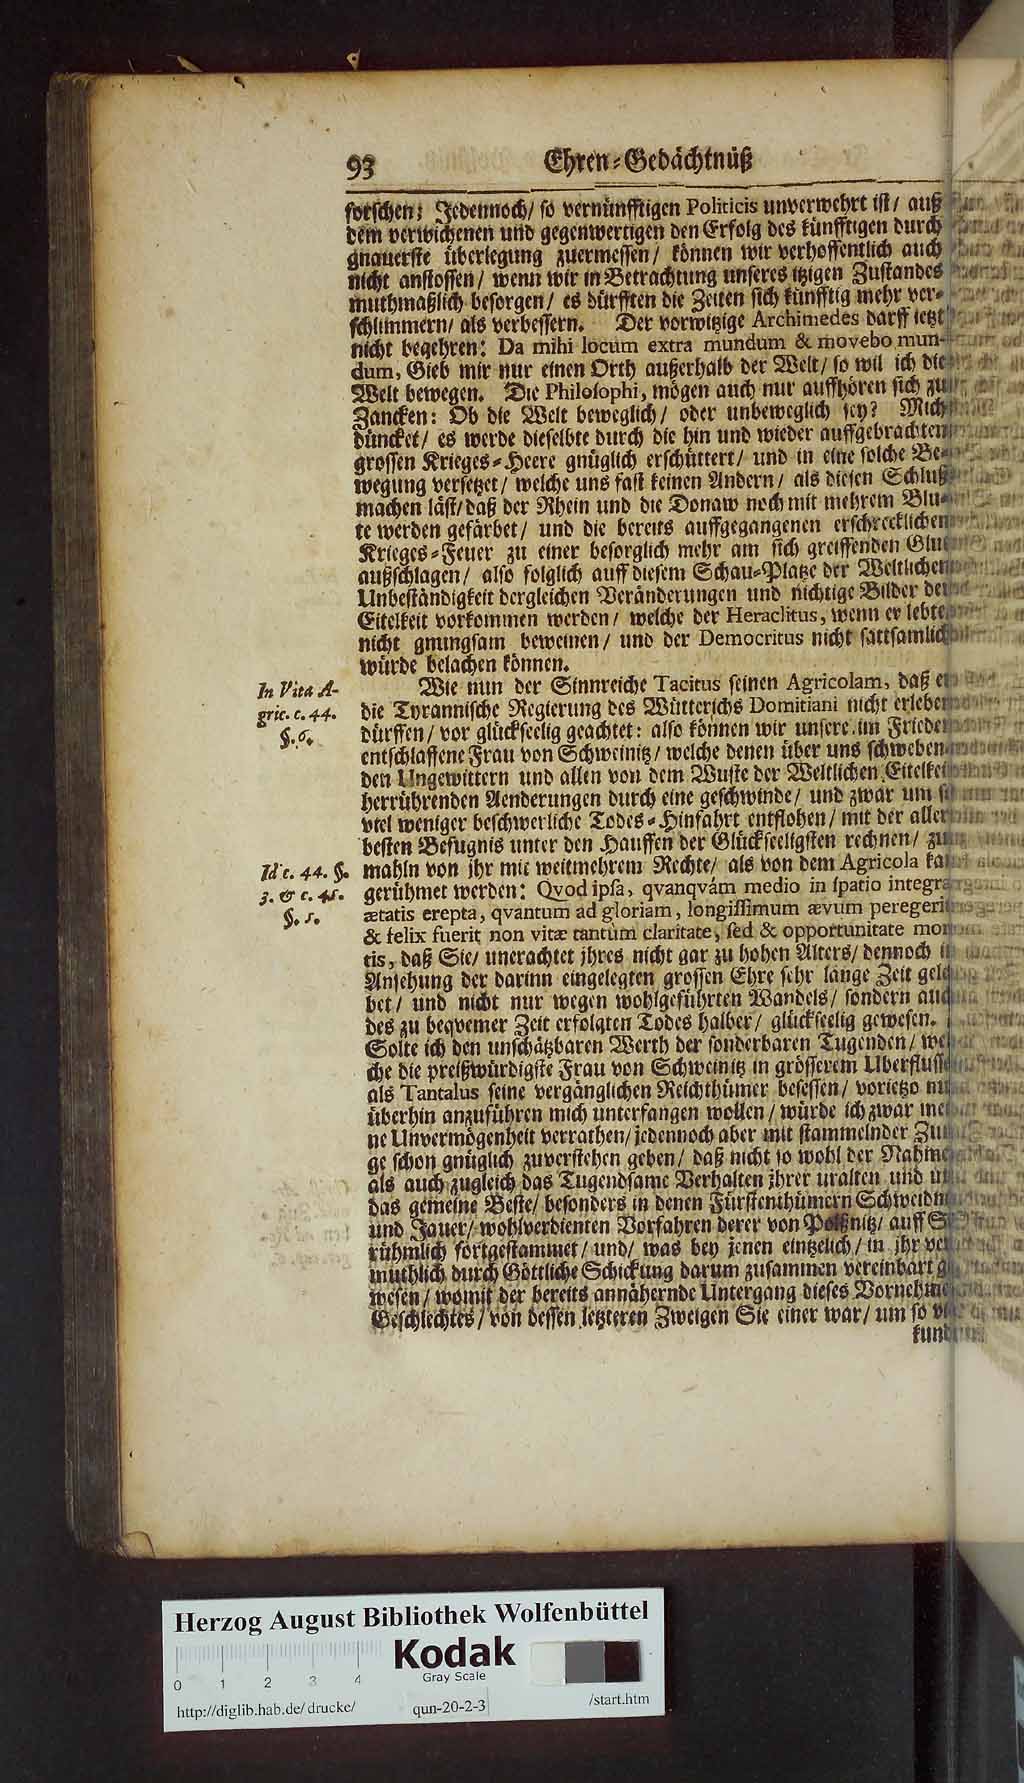 93 Ehren-Gedächtnüß
forschen; Jedennoch/ so vernünfftigen Politicis unverwehrt ist/ auß
dem verwichenen und gegenwertigen den Erfolg des künfftigen durch
gnauerste überlegung zuermessen/ können wir verhoffentlich auch
nicht anstossen/ wenn wir in Betrachtung unseres itzigen Zustandes
muthmaßlich besorgen/ es dürfften die Zeiten sich künfftig mehr ver-
schlimmern/ als verbessern. Der vorwitzige Archimedes darff ietzt
nicht begehren: Da mihi locum extra mundum & movebo mun-
dum, Gieb mir nur einen Orth außerhalb der Welt/ so wil ich die
Welt bewegen. Die Philosophi, mögen auch nur auffhören sich zu
Zancken: Ob die Welt beweglich/ oder unbeweglich sey? Mich
düncket/ es werde dieselbte durch die hin und wieder auffgebrachten
grossen Krieges-Heere gnüglich erschüttert/ und in eine solche Be-
wegung versetzet/ welche uns fast keinen Andern/ als diesen Schluß
machen läst/ daß der Rhein und die Donaw noch mit mehrem Blu-
te werden gefärbet/ und die bereits auffgegangenen erschrecklichen
Krieges-Feuer zu einer besorglich mehr am sich greiffenden Glut
außschlagen/ also folglich auff diesem Schau-Platze der Weltlichen
Unbeständigkeit dergleichen Veränderungen und nichtige Bilder der
Eitelkeit vorkommen werden/ welche der Heraclitus, wenn er lebte
nicht gnungsam beweinen/ und der Democritus nicht sattsamlich
würde belachen können.
In Vita A-
gric. c. 44.
§. 6.
Wie nun der Sinnreiche Tacitus seinen Agricolam, daß e
die Tyrannische Regierung des Wütterichs Domitiani nicht erleben
dürffen/ vor glückseelig geachtet: also können wir unsere im Friede
entschlaffene Frau von Schweinitz/ welche denen über uns schweben-
den Ungewittern und allen von dem Wuste der Weltlichen Eitelkei
herrührenden Aenderungen durch eine geschwinde/ und zwar um s
viel weniger beschwerliche Todes-Hinfahrt entflohen/ mit der aller
besten Befugnis unter den Hauffen der Glückseeligsten rechnen/ zu
Id c. 44. §.
3. & c. 45.
§. 5.
mahln von jhr mit weitmehrem Rechte/ als von dem Agricola ka
gerühmet werden: Qvod ipsa, qvanqvám medio in spatio integra
ætatis erepta, qvantum ad gloriam, longissimum ævum peregerit
& felix fuerit non vitæ tantum claritate, sed & opportunitate mor
tis, daß Sie/ unerachtet jhres nicht gar zu hohen Alters/ dennoch i
Ansehung der darinn eingelegten grossen Ehre sehr lange Zeit gele
bet/ und nicht nur wegen wohlgeführten Wandels/ sondern auc
des zu beqvemer Zeit erfolgten Todes halber/ glückseelig gewesen.
Solte ich den unschätzbaren Werth der sonderbaren Tugenden/ we
che die preißwürdigste Frau von Schweinitz in grösserem Uberflusse
als Tantalus seine vergänglichen Reichthümer besessen/ vorietzo nu
überhin anzuführen mich unterfangen wollen/ würde ich zwar mei
ne Unvermögenheit verrathen/ jedennoch aber mit stammelnder Zu
ge schon gnüglich zuverstehen geben/ daß nicht so wohl der Nahme
als auch zugleich das Tugendsame Verhalten jhrer uralten und u
das gemeine Beste/ besonders in denen Fürstenthümern Schweidn
und Jauer/ wohlverdienten Vorfahren derer von Polßnitz/ auff S
rühmlich fortgestammet/ und/ was bey jenen eintzelich/ in jhr ver
muthlich durch Göttliche Schickung darum zusammen vereinbart g
wesen/ womit der bereits annähernde Untergang dieses Vornehme
Geschlechtes/ von dessen letzteren Zweigen Sie einer war/ um so vi
kund
Herzog August Bibliothek Wolfenbüttel
0 1 2 3 4
Kodak
Gray Scale
http://diglib.hab.de/drucke/ qun-20-2-3 /start.htm